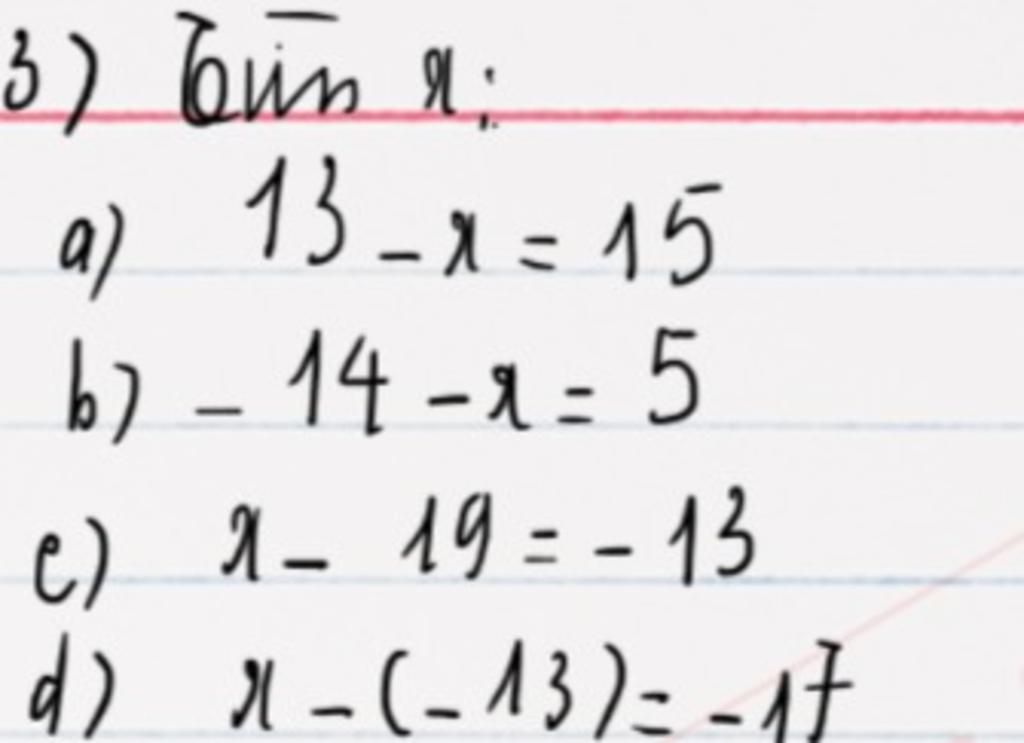 3) Tìm x:
a) 13 - x = 15
b) - 14 - x = 5
c) x - 19 = - 13
d) x - (- 13) = - 17